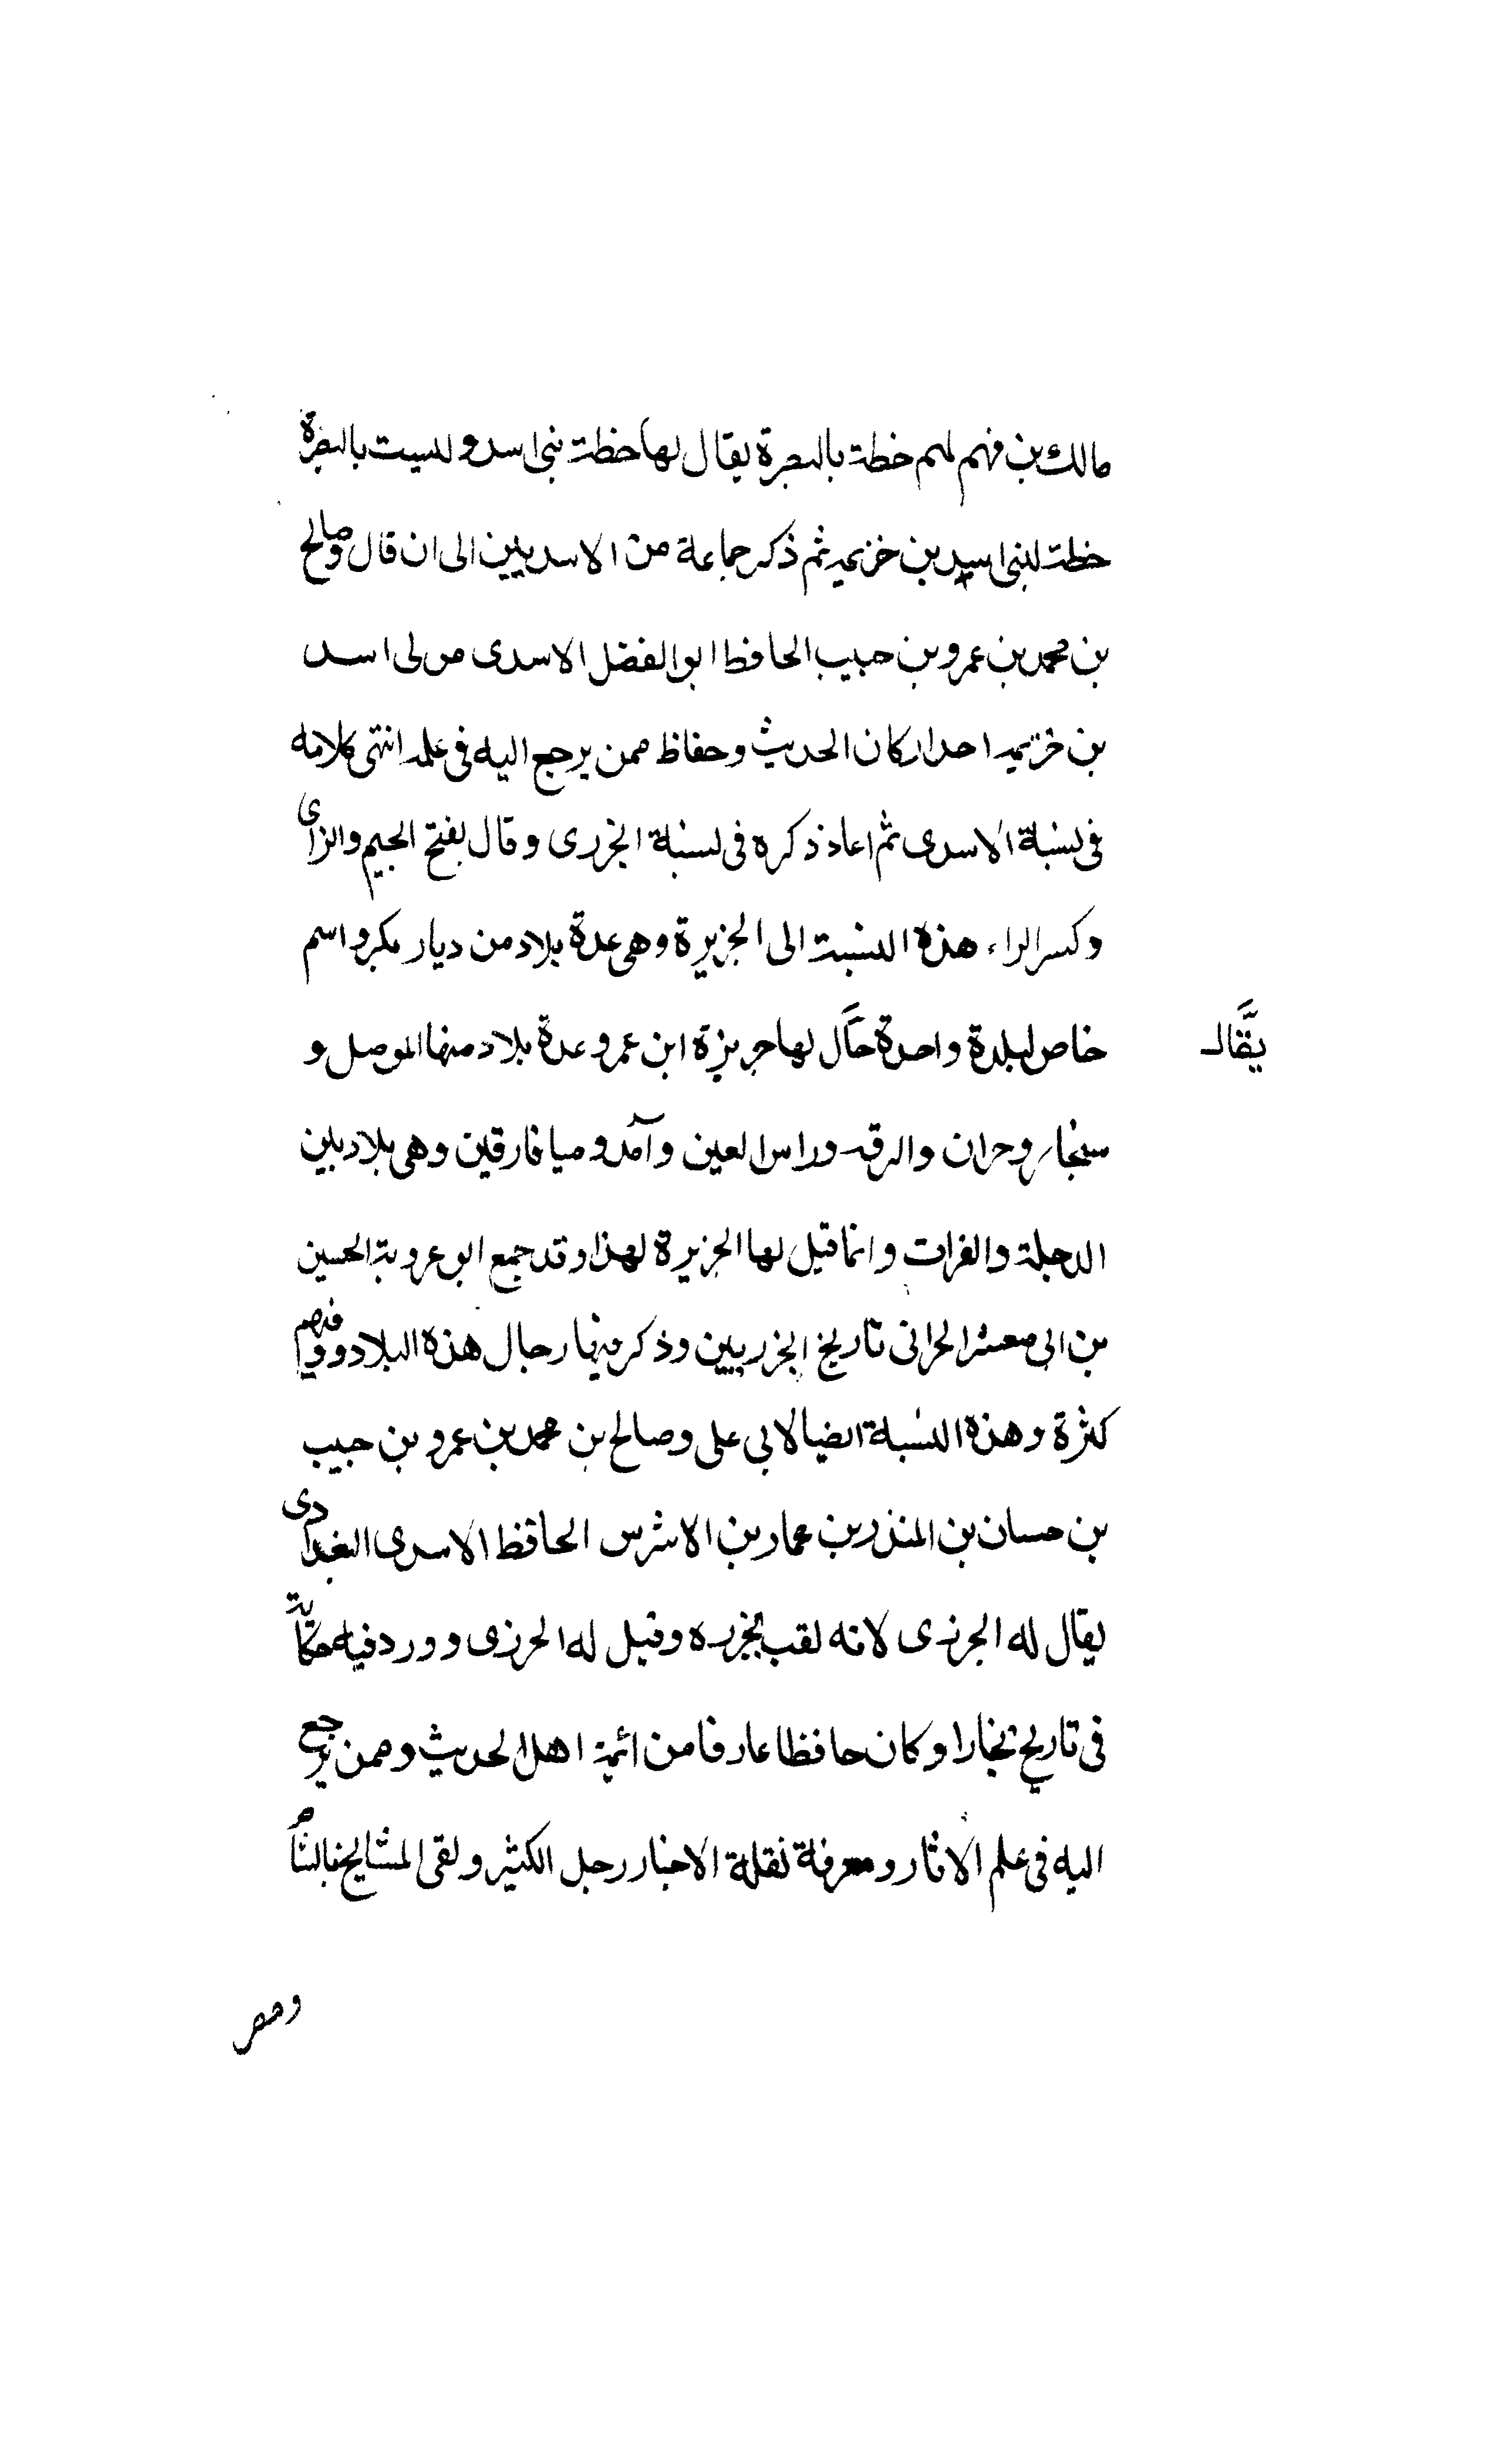 مالك بن فهم لهم خطة بالبصرة يقال لها خطة بنى اسد وليست بالبصرة
خطة لبنى اسد بن خزيمه ثم ذكر جماعة من الاسديين الى ان قال وصالح
بن محمد بن عمرو بن حبيب الحافظ ابو الفضل الاسدى مولى اسد
بن خزيمه احد اركان الحديث وحفاظ ممن يرجع اليه فى علمه انتهى كلامه
فى نسبة الاسدى ثم اعاد ذكره فى نسبة الجزرى وقال بفتح الجيم والزاى
وكسر الراء هذه النسبة الى الجزيرة وهى عدة بلاد من ديار بكر واسم
خاص لبلدة واحدة حال لها جزيرة ابن عمرو عدة بلاد منها الموصل و
يقال
سنجار وحران والرقه وراس العين وآمد وميافارقين وهى بلاد بين
الدجلة والفرات وانما قيل لها الجزيرة لهذا وقد جمع ابو عروبة الحسين
بن ابى معشر الحرانى تاريخ الجزريين وذكر فيها رجال هذه البلاد ووفيهم
كثرة وهذه النسبة ايضا لابى على وصالح بن محمد بن عمرو بن حبيب
بن حسان بن المنذر بن عمار بن الاشرس الحافظ الاسدى البغدادى
يقال له الجزرى لانه لقب بجزره وقيل له الحرزى وورد فيه حكاية
فى تاريخ بخارا وكان حافظا عارفا من ائمة اهل الحديث وممن يرجع
اليه فى علم الاثار ومعرفة نقلة الاخبار رحل الكثير ولقى المشايخ بالشام
ومصر